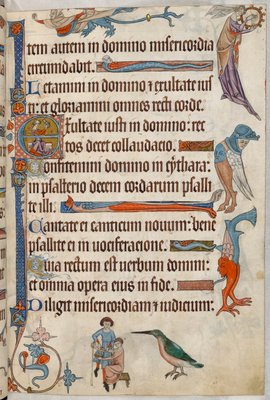 tem autem in domino misericordia
circumdabit.
Letamini in domino & exultate ius
ti: et gloriamini omnes recti corde.
Exultate iusti in domino: rec
tos decet collaudacio.
Confitemini domino in cythara:
in psalterio decem cordarum psalli
te illi.
Cantate ei canticum nouum: bene
psallite ei in uociferacione.
Quia rectum est uerbum domini:
et omnia opera eius in fide.
Diligit misericordiam & iudicium: